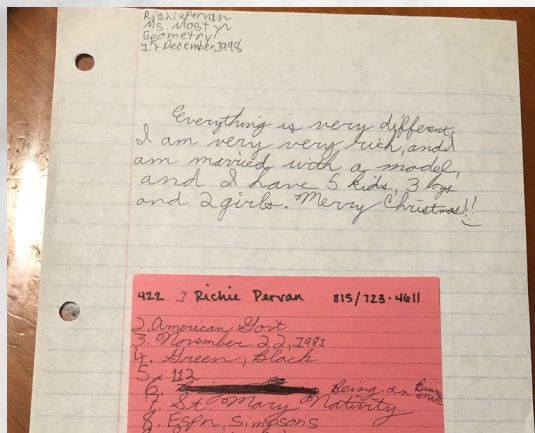 Richie Pervan
Ms. Mostyn
Geometry
17 December 1998
Everything is very different,
I am very very rich, and I
am married with a model,
and I have 5 kids, 3 boys
and 2 girls. Merry Christmas!!
422 1 Richie Pervan 815/723-4611
2. American Govt
3. November 22, 1981
4. Green, Black
5. 112
6. Being an
7. St. Mary Nativity
8. Espn, Simpsons